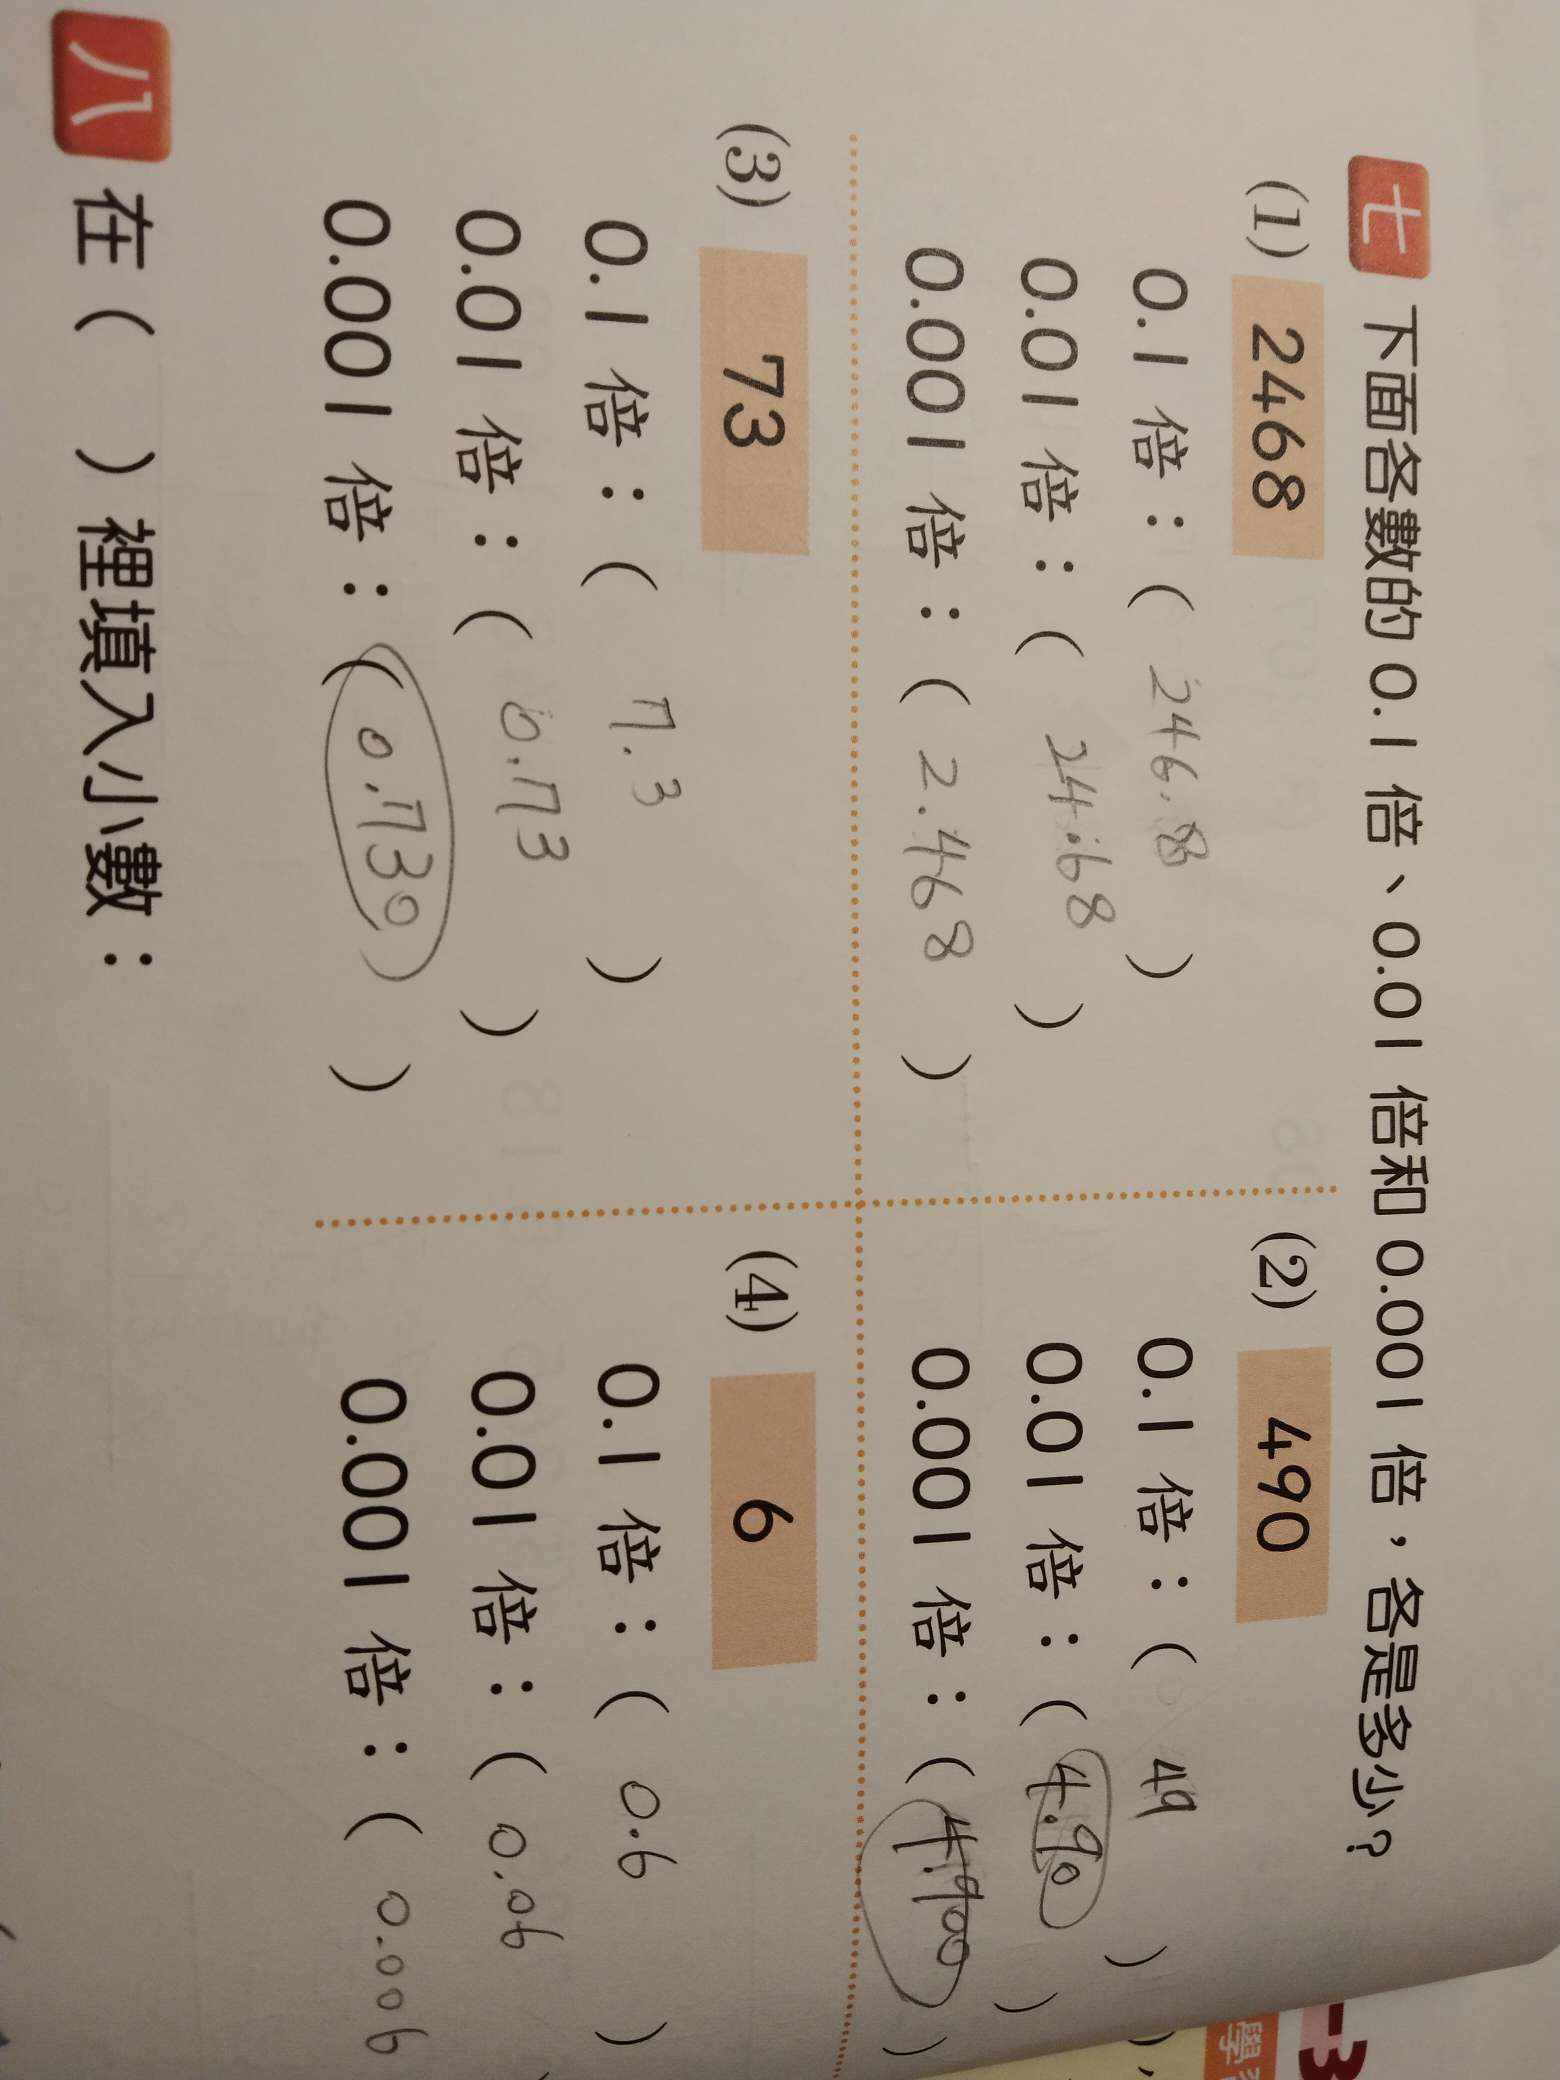 七 下面各數的 0.1 倍、0.01 倍和 0.001 倍，各是多少？
(1) 2468
0.1 倍：( 246.8 )
0.01 倍：( 24.68 )
0.001 倍：( 2.468 )
(2) 490
0.1 倍：( 49 )
0.01 倍：( 4.90 )
0.001 倍：( 4.900 )
(3) 73
0.1 倍：( 7.3 )
0.01 倍：( 0.73 )
0.001 倍：( 0.730 )
(4) 6
0.1 倍：( 0.6 )
0.01 倍：( 0.06 )
0.001 倍：( 0.006
八 在( )裡填入小數：
-3
學